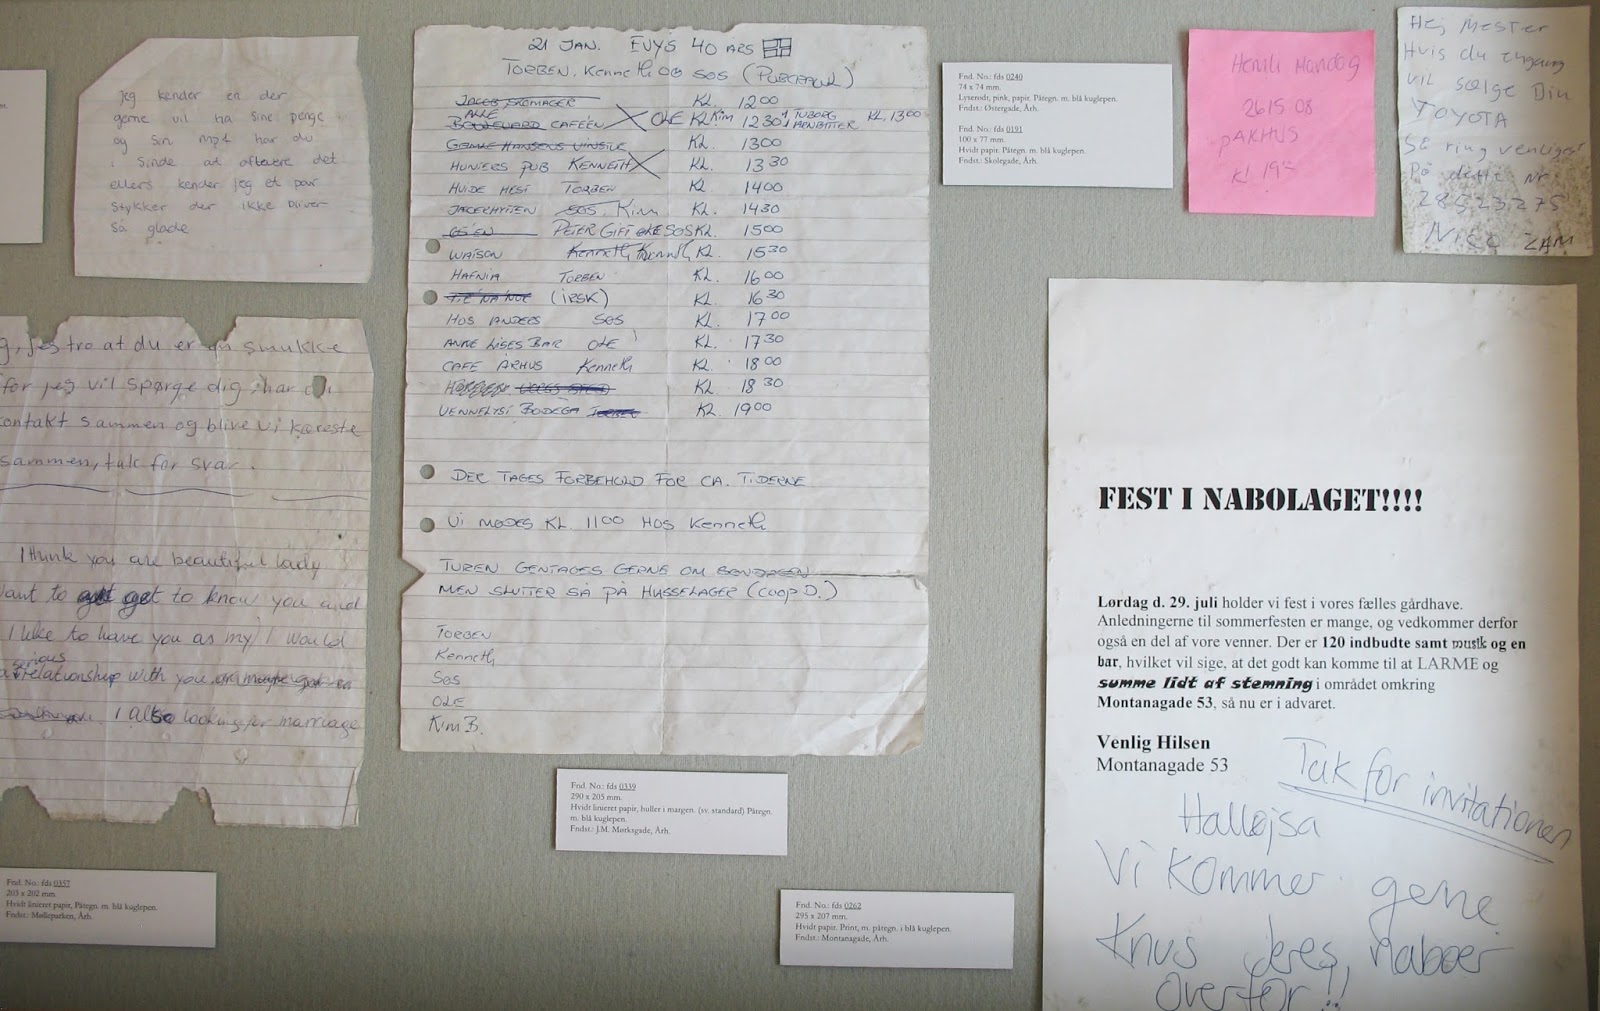 Jeg kender en der
gerne vil ha sine penge
og sin mp4 har du
i sinde at aflevere det
ellers kender jeg et par
stykker der ikke bliver
så glade
jeg tro at du er en smukke
for jeg vil spørge dig, har du
kontakt sammen og blive vi kæreste
sammen, tak for svar.
I think you are beautiful lady
want to get to know you and
I like to have you as my I would
serious
relationship with you
I also looking for marriage
Fnd. No.: fds 0357
205 x 202 mm.
Hvidt linieret papir, Påtegn. m. blå kuglepen.
Fndst.: Mølleparken, Årh.
21 JAN. EVYS 40 ÅRS
TORBEN, Kenneth OG SØS (PUBCRAWL)
JACOB SKOMAGER KL. 1200
ALLE
BOULEVARD CAFÉEN OLE KL Kim 1230 1 TUBORG 1 ARNBITTER KL, 1300
GAMLE HANSENS VINSTUE KL. 1300
HUNTERS PUB KENNETH KL. 1330
HVIDE HEST TORBEN KL. 1400
JÆGERHYTTEN SØS, Kim KL. 1430
PETER GIFT OLE SØS KL. 1500
WAISON Kenneth Kenneth KL. 1530
HAFNIA TORBEN KL. 1600
(IRSK) KL. 1630
HOS ANDERS SØS KL. 1700
ANNE LISES BAR OLE KL. 1730
CAFE ÅRHUS Kenneth KL. 1800
KL. 1830
VENNELYST BODEGA KL. 1900
DER TAGES FORBEHOLD FOR CA. TIDERNE
VI MØDES KL. 1100 HOS Kenneth
TUREN GENTAGES GERNE OM SØNDAGEN
MEN SLUTTER SÅ PÅ HUSSELAGER (COOP D.)
TORBEN
Kenneth
SØS
OLE
Kim B.
Fnd. No.: fds 0339
290 x 205 mm.
Hvidt linieret papir, huller i margen. (sv. standard) Påtegn.
m. blå kuglepen.
Fndst.: J.M. Mørksgade, Årh.
Fnd. No.: fds 0240
74 x 74 mm.
Lyserødt, pink, papir. Påtegn. m. blå kuglepen.
Fndst.: Østergade, Årh.
Fnd. No.: fds 0191
100 x 77 mm.
Hvidt papir. Påtegn. m. blå kuglepen.
Fndst.: Skolegade, Årh.
Henrik Mandag
2615 08
PAKHUS
Kl 19
Hej Mester
Hvis du engang
vil sælge Din
TOYOTA
SÅ ring venligst
På dette nr
28523275
NICO ZAM
FEST I NABOLAGET!!!!
Lørdag d. 29. juli holder vi fest i vores fælles gårdhave.
Anledningerne til sommerfesten er mange, og vedkommer derfor
også en del af vore venner. Der er 120 indbudte samt musik og en
bar, hvilket vil sige, at det godt kan komme til at LARME og
summe lidt af stemning i området omkring
Montanagade 53, så nu er i advaret.
Venlig Hilsen
Montanagade 53
Tak for invitationen
Halløjsa
Vi kommer gerne
Knus deres naboer
overfor!!
Fnd. No.: fds 0262
295 x 207 mm.
Hvidt papir. Print, m. påtegn. i blå kuglepen.
Fndst.: Montanagade, Årh.